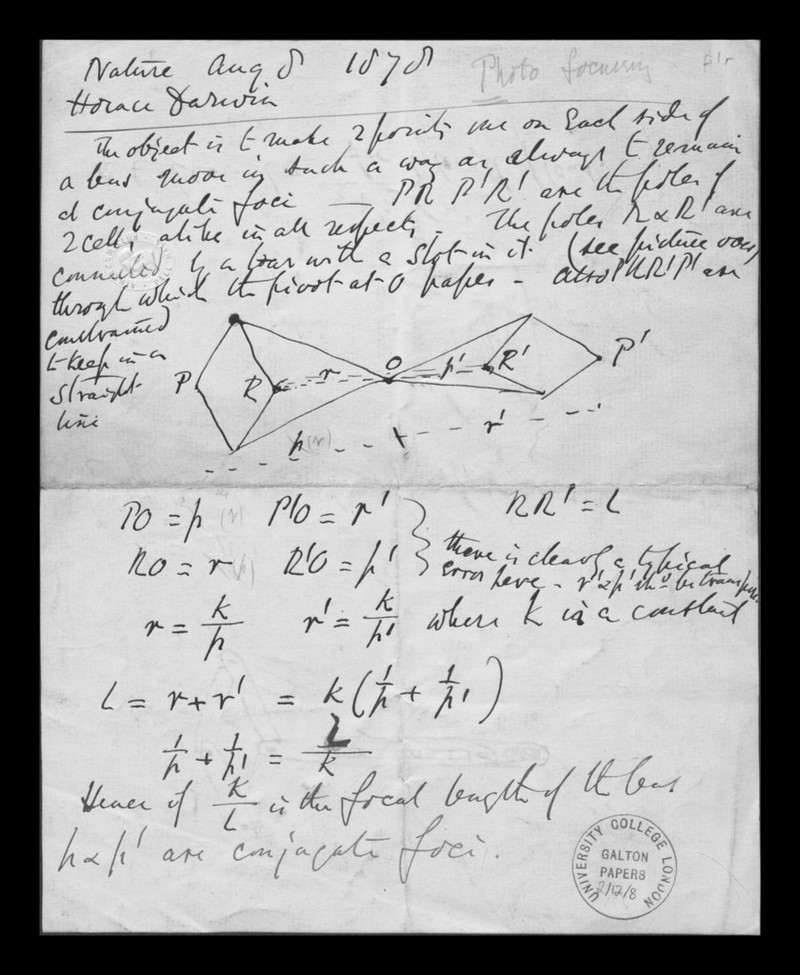 Nature Aug 8 1878 Photo focusing
Horace Darwin
The object is to make 2 points one on each side of
a lens move in such a way as always to remain
at conjugate foci — PR P'R' are the poles of
2 cells alike in all respects - The poles R & R' are
connected by a bar with a slot in it (see picture over)
through which the pivot at O passes - also PRR'P' are
constrained
to keep in a
straight
line
O
P R r p' R' P'
p (r) r'
PO = p (r) P'O = r' RR' = L
RO = r R'O = p' there is clearly a typical
error here - r' & p' shd be transposed
r = k/p r' = k/p' where k is a constant
L = r + r' = k(1/p + 1/p')
1/p + 1/p' = L/k
Hence if k/L is the focal length of the lens
p & p' are conjugate foci.
UNIVERSITY COLLEGE LONDON
GALTON
PAPERS
2/12/8